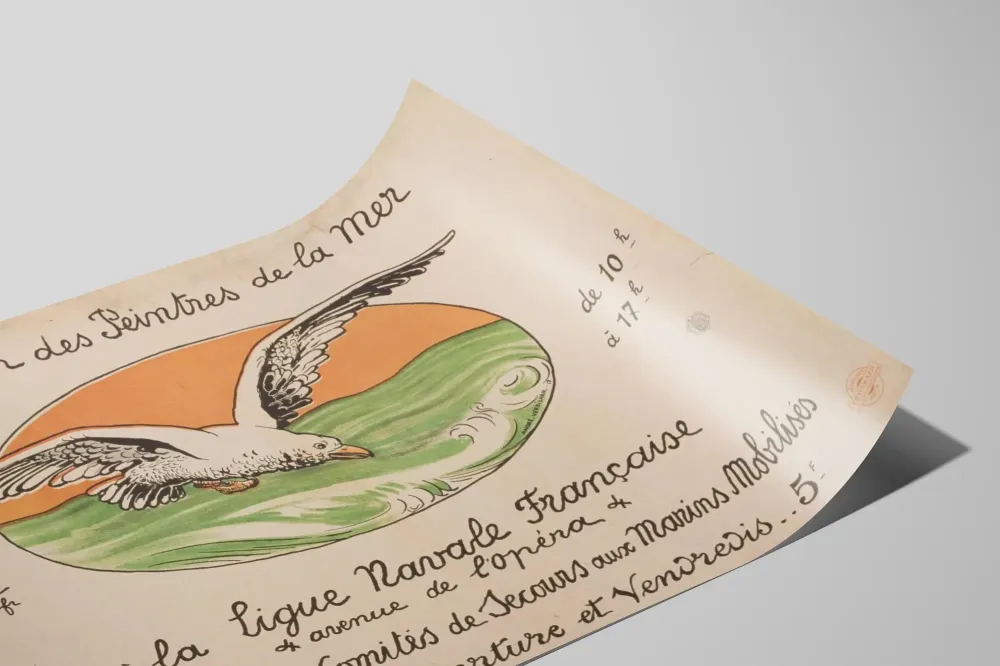 des Peintres de la Mer
de 10 h
à 17 h
la Ligue Navale Française
avenue de l'opéra
Comités de Secours aux Marins Mobilisés
et Vendredis.. 5F